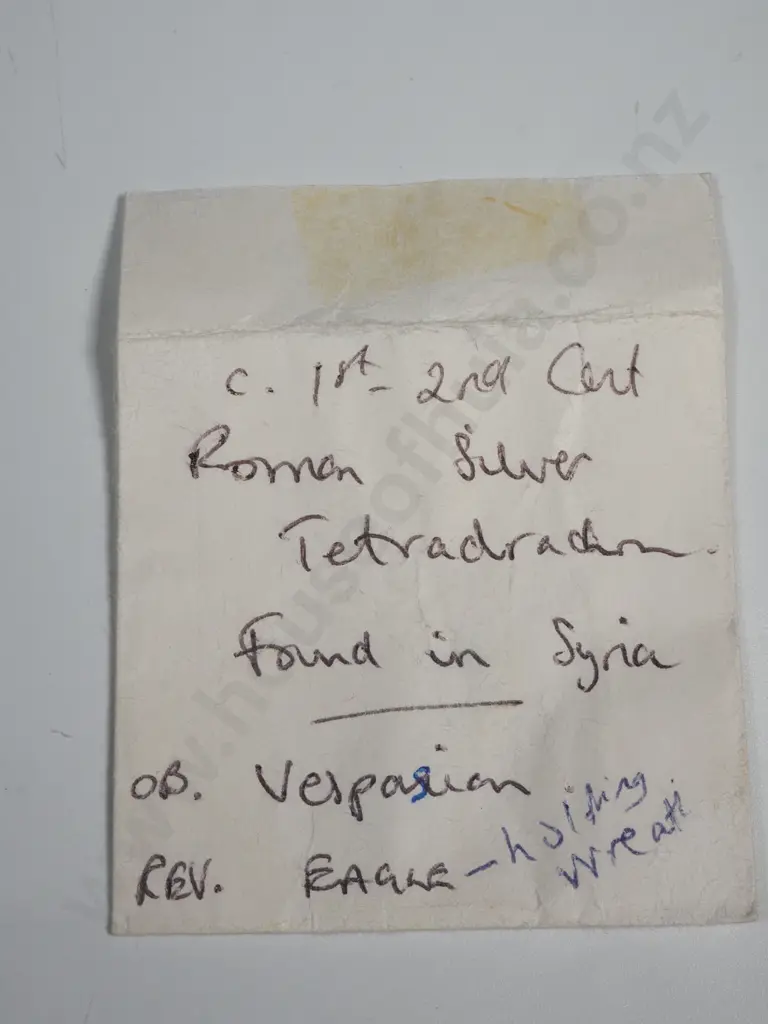 c. 1st - 2nd Cent
Roman Silver
Tetradrachm.
Found in Syria
OB. Vespasian
REV. EAGLE - holding
wreath
www.houseofhulia.co.nz